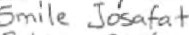 Smile Josafat